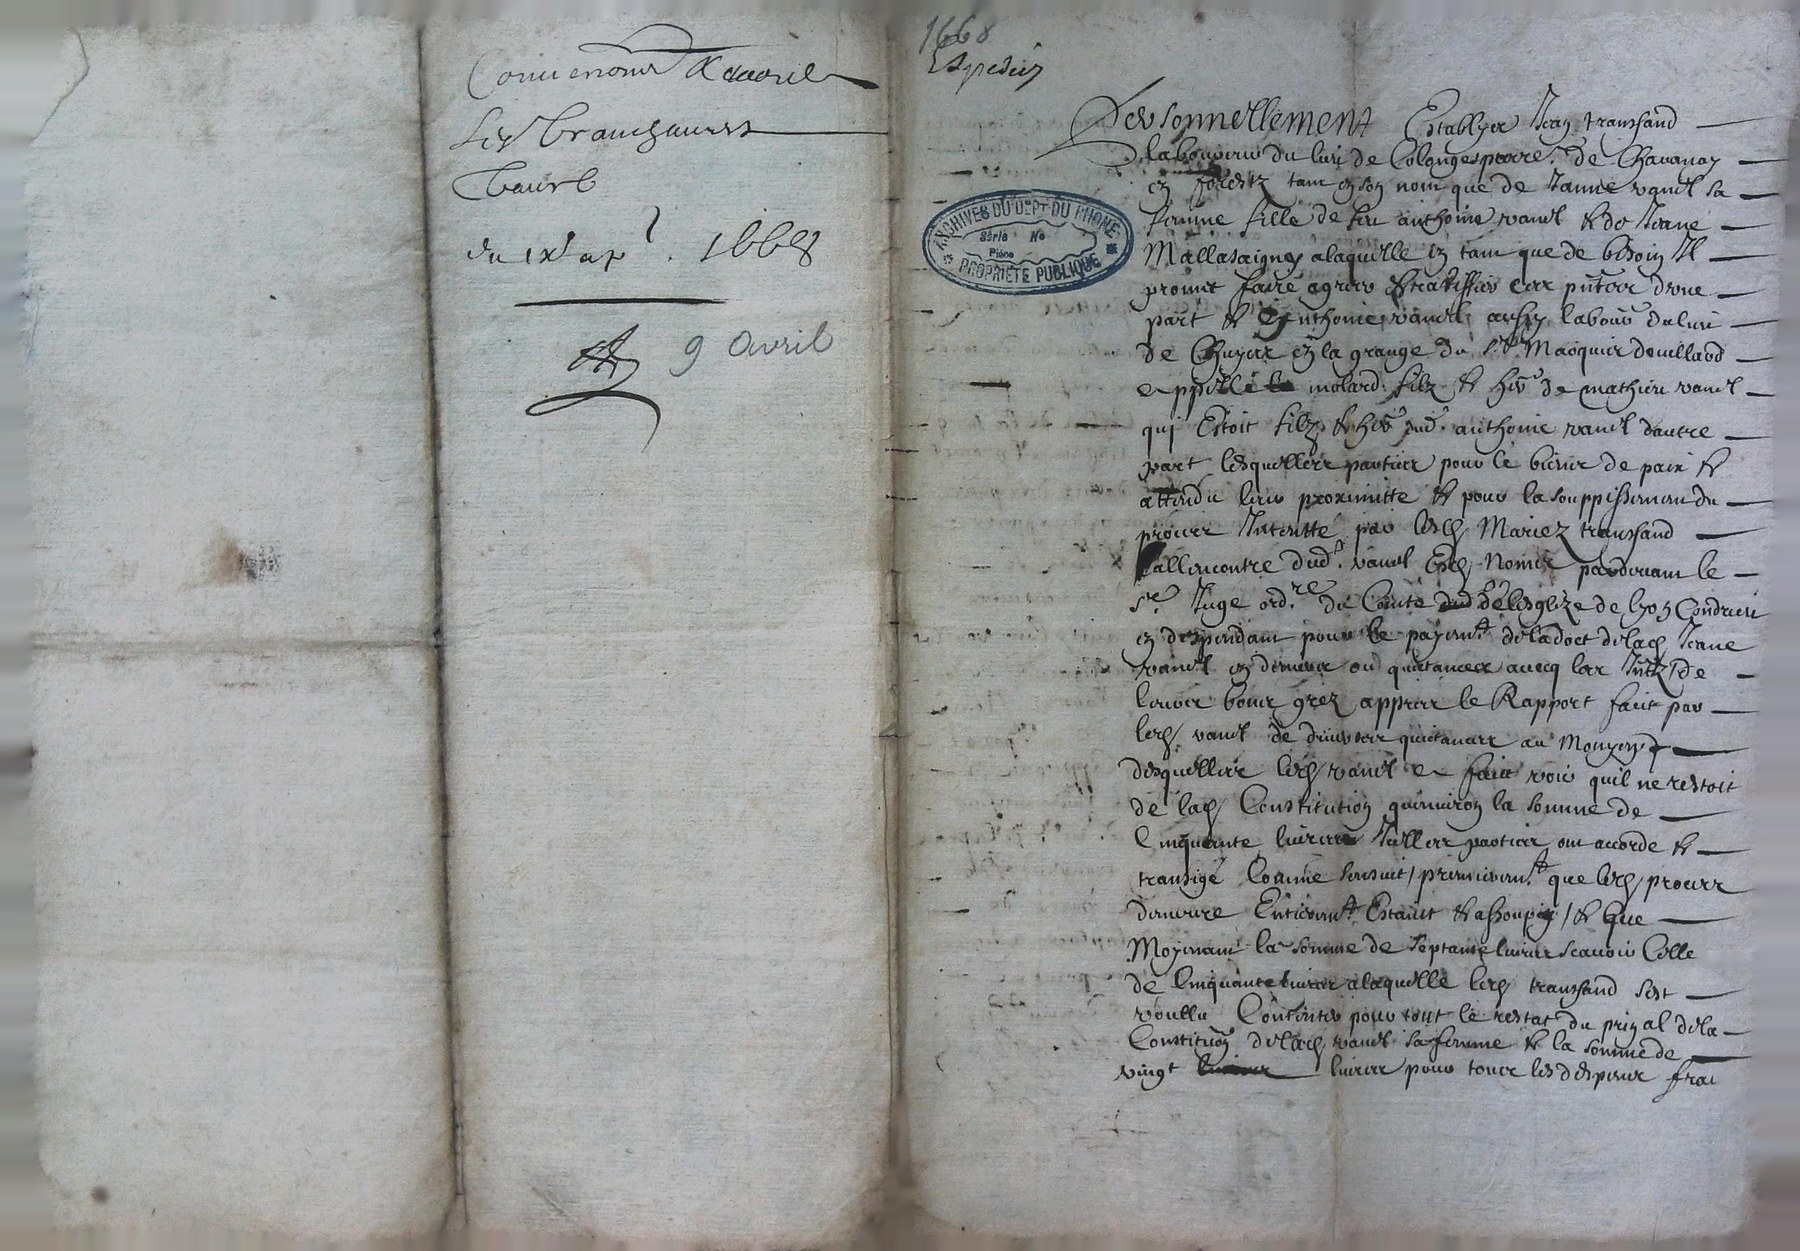 Convenones
du ix ap.l 1668
9 avril
1668
Expediez
ARCHIVES DU DEPT DU RHONE
Série No
Pièce
PROPRIETE PUBLIQUE
Personnellement Establyes Jean transsand
laboureur du lieu de Colonges parr. de Chavanay
en forestz tant en son nom que de Janne vanel sa
femme fille de feu anthoine vanel & de Jeane
Mallasaigne a laquelle en tant que de besoin Il
promet faire agreer & rattiffier ces pntes dune
part & anthoine vanel aussy labour du lieu
de Chuyer en la grange du Sr
appellé molard filz & her de mathieu vanel
qui Estoit filz & her dud. anthoine vanel dautre
part lesquelles parties pour le bien de paix &
attendu leur proximitte & pour lassouppissement du
proces Intentté par lesd Mariez transsand
allencontre dud. vanel Esd Noms pardevant le
Sr Juge ord.re du Comté de lesglize de lyon Condrieu
en despendant pour le payemt de la doct de lad Jeane
vanel en deniers ou quictances avecq les Intz de
leurs bons grez appres le Rapport faict par
led vanel de diverses quictances au Moyen
desquelles led vanel a faict voir quil ne restoit
de lad Constitution quenviron la somme de
Cinquante livres Icelles parties ont accordé &
transigé Comme sensuit / premierement que led proces
demeure Entierement Estaint & assoupy / & que
Moyenant la somme de septante livres scavoir Celle
de Cinquante livres a laquelle led transsand sest
voullu Contenter pour tout le restat du prinal de la
Constituon de lad vanel sa femme & la somme de
vingt livres pour tous les despens frai